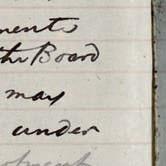 ments
the Board
may
under